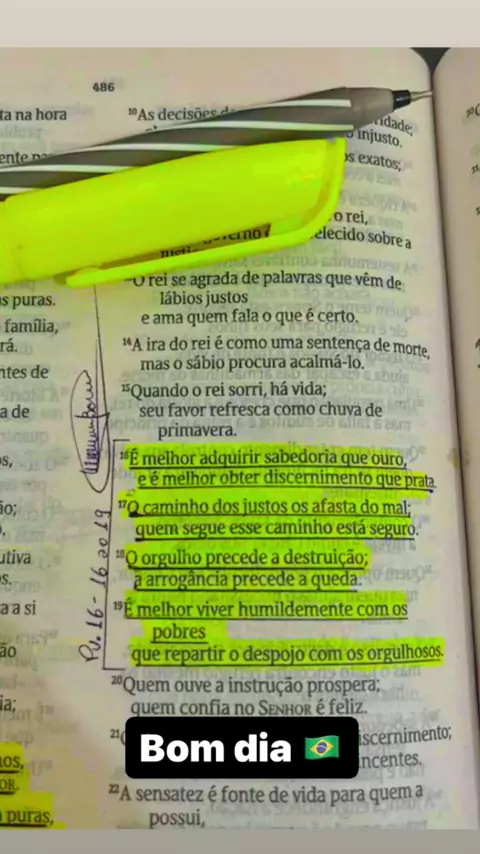 486
ta na hora
s puras.
família,
rá.
ntes de
a de
s,
ão;
o.
utiva
s.
a a si
ão
ia;
nos,
OR.
puras,
10As decisões d
idade;
injusto.
s exatos;
o rei,
governo é elecido sobre a
justi
O rei se agrada de palavras que vêm de
lábios justos
e ama quem fala o que é certo.
14A ira do rei é como uma sentença de morte,
mas o sábio procura acalmá-lo.
15Quando o rei sorri, há vida;
seu favor refresca como chuva de
primavera.
16É melhor adquirir sabedoria que ouro,
e é melhor obter discernimento que prata.
17O caminho dos justos os afasta do mal;
quem segue esse caminho está seguro.
18O orgulho precede a destruição;
a arrogância precede a queda.
19É melhor viver humildemente com os
pobres
que repartir o despojo com os orgulhosos.
20Quem ouve a instrução prospera;
quem confia no SENHOR é feliz.
21 iscernimento;
incentes.
22A sensatez é fonte de vida para quem a
possui,
Pv. 16 - 16 ao 19
Bom dia 🇧🇷